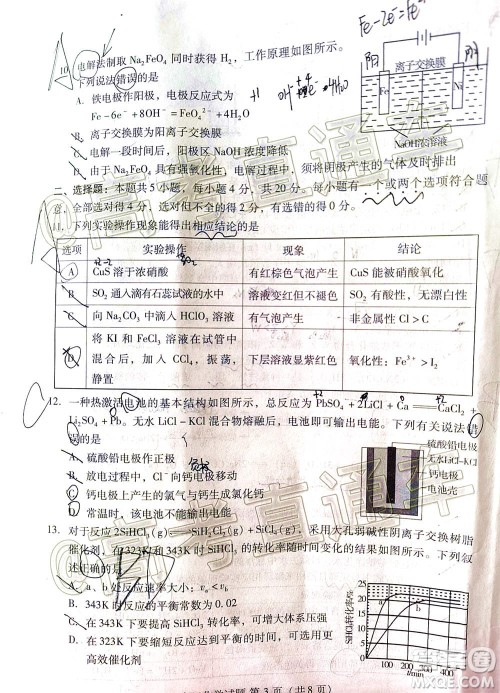 Fe-2e⁻=Fe²⁺
10. 电解法制取 Na₂FeO₄ 同时获得 H₂，工作原理如图所示。
下列说法错误的是
A. 铁电极作阳极，电极反应式为
Fe－6e⁻＋8OH⁻＝FeO₄²⁻＋4H₂O
B. 离子交换膜为阴离子交换膜
C. 电解一段时间后，阳极区 NaOH 浓度降低
D. 由于 Na₂FeO₄ 具有强氧化性，电解过程中，须将阴极产生的气体及时排出
阳
离子交换膜
Fe
Ni
NaOH浓溶液
二、选择题：本题共 5 小题，每小题 4 分，共 20 分。每小题有一个或两个选项符合题
意，全部选对得 4 分，选对但不全的得 2 分，有选错的得 0 分。
11. 下列实验操作现象能得出相应结论的是
选项 实验操作 现象 结论
A CuS 溶于浓硝酸 有红棕色气泡产生 CuS 能被硝酸氧化
B SO₂ 通入滴有石蕊试液的水中 溶液变红但不褪色 SO₂ 有酸性，无漂白性
C 向 Na₂CO₃ 中滴入 HClO₃ 溶液 有气泡产生 非金属性 Cl＞C
D 将 KI 和 FeCl₃ 溶液在试管中
混合后，加入 CCl₄，振荡，
静置 下层溶液显紫红色 氧化性：Fe³⁺＞I₂
12. 一种热激活电池的基本结构如图所示，总反应为 PbSO₄＋2LiCl＋Ca＝CaCl₂＋
Li₂SO₄＋Pb。无水 LiCl－KCl 混合物熔融后，电池即可输出电能。下列有关说法错
误的是
A. 硫酸铅电极作正极
B. 放电过程中，Cl⁻向钙电极移动
C. 钙电极上产生的氯气与钙生成氯化钙
D. 常温时，该电池不能输出电能
硫酸铅电极
无水LiCl-KCl
钙电极
电池壳
13. 对于反应 2SiHCl₃(g)＝SiH₂Cl₂(g)＋SiCl₄(g)，采用大孔弱碱性阴离子交换树脂
催化剂，在 323K 和 343K 时 SiHCl₃ 的转化率随时间变化的结果如图所示。下列叙
述正确的是
A. a、b 处反应速率大小：vₐ＜v_b
B. 343K 时反应的平衡常数为 0.02
C. 在 343K 下要提高 SiHCl₃ 转化率，可增大体系压强
D. 在 323K 下要缩短反应达到平衡的时间，可选用更
高效催化剂
SiHCl₃转化率/%
25
20
15
10
5
0
a
b
100 200 300 400
t/min
第 3 页（共 8 页）
MXQE.COM